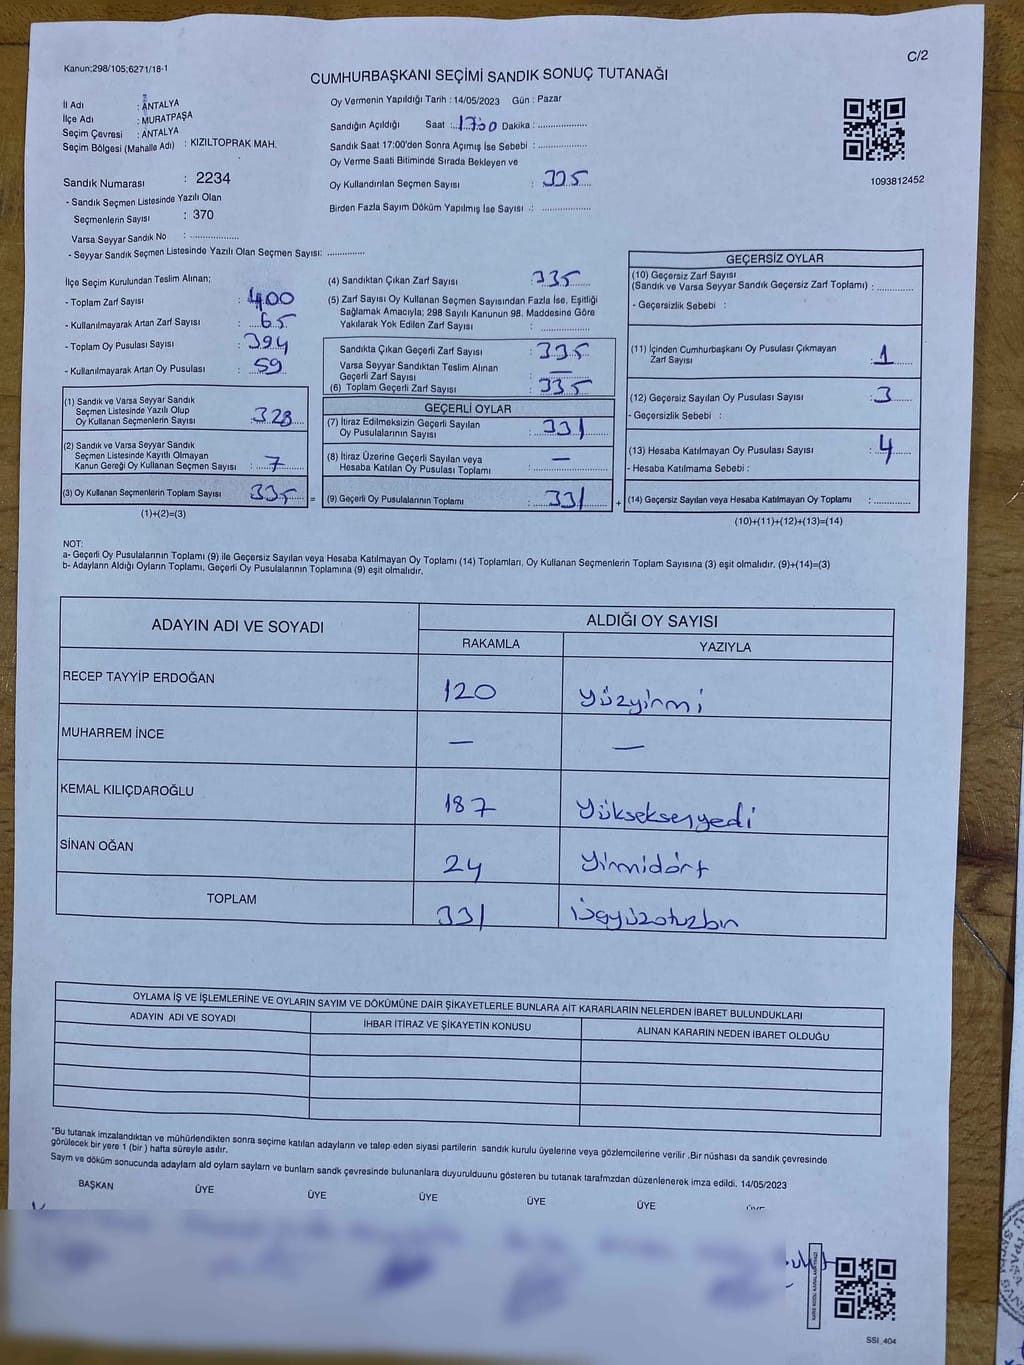 C/2
Kanun;298/105;6271/18-1
CUMHURBAŞKANI SEÇİMİ SANDIK SONUÇ TUTANAĞI
İl Adı : ANTALYA
İlçe Adı : MURATPAŞA
Seçim Çevresi : ANTALYA
Seçim Bölgesi (Mahalle Adı) : KIZILTOPRAK MAH.
Sandık Numarası : 2234
- Sandık Seçmen Listesinde Yazılı Olan
Seçmenlerin Sayısı : 370
Varsa Seyyar Sandık No : ..................
- Seyyar Sandık Seçmen Listesinde Yazılı Olan Seçmen Sayısı: ..............
Oy Vermenin Yapıldığı Tarih : 14/05/2023 Gün : Pazar
Sandığın Açıldığı Saat : 17:00 Dakika : ..................
Sandık Saat 17:00'den Sonra Açımış İse Sebebi : ..................
Oy Verme Saati Bitiminde Sırada Bekleyen ve
Oy Kullandırılan Seçmen Sayısı : 335
Birden Fazla Sayım Döküm Yapılmış İse Sayısı .: ..................
1093812452
İlçe Seçim Kurulundan Teslim Alınan;
- Toplam Zarf Sayısı : 400
- Kullanılmayarak Artan Zarf Sayısı : 65
- Toplam Oy Pusulası Sayısı : 394
- Kullanılmayarak Artan Oy Pusulası : 59
(1) Sandık ve Varsa Seyyar Sandık
Seçmen Listesinde Yazılı Olup
Oy Kullanan Seçmenlerin Sayısı : 328
(2) Sandık ve Varsa Seyyar Sandık
Seçmen Listesinde Kayıtlı Olmayan
Kanun Gereği Oy Kullanan Seçmen Sayısı : 7
(3) Oy Kullanan Seçmenlerin Toplam Sayısı 335 =
(1)+(2)=(3)
(4) Sandıktan Çıkan Zarf Sayısı : 335
(5) Zarf Sayısı Oy Kullanan Seçmen Sayısından Fazla İse, Eşitliği
Sağlamak Amacıyla; 298 Sayılı Kanunun 98. Maddesine Göre
Yakılarak Yok Edilen Zarf Sayısı : ..................
Sandıkta Çıkan Geçerli Zarf Sayısı : 335
Varsa Seyyar Sandıktan Teslim Alınan
Geçerli Zarf Sayısı : —
(6) Toplam Geçerli Zarf Sayısı : 335
GEÇERLİ OYLAR
(7) İtiraz Edilmeksizin Geçerli Sayılan
Oy Pusulalarının Sayısı : 331
(8) İtiraz Üzerine Geçerli Sayılan veya
Hesaba Katılan Oy Pusulası Toplamı : —
(9) Geçerli Oy Pusulalarının Toplamı : 331 +
GEÇERSİZ OYLAR
(10) Geçersiz Zarf Sayısı
(Sandık ve Varsa Seyyar Sandık Geçersiz Zarf Toplamı) : ..............
- Geçersizlik Sebebi :
(11) İçinden Cumhurbaşkanı Oy Pusulası Çıkmayan
Zarf Sayısı : 1
(12) Geçersiz Sayılan Oy Pusulası Sayısı : 3
- Geçersizlik Sebebi :
(13) Hesaba Katılmayan Oy Pusulası Sayısı : 4
- Hesaba Katılmama Sebebi :
(14) Geçersiz Sayılan veya Hesaba Katılmayan Oy Toplamı : ..............
(10)+(11)+(12)+(13)=(14)
NOT:
a- Geçerli Oy Pusulalarının Toplamı (9) ile Geçersiz Sayılan veya Hesaba Katılmayan Oy Toplamı (14) Toplamları, Oy Kullanan Seçmenlerin Toplam Sayısına (3) eşit olmalıdır. (9)+(14)=(3)
b- Adayların Aldığı Oyların Toplamı, Geçerli Oy Pusulalarının Toplamına (9) eşit olmalıdır.
ADAYIN ADI VE SOYADI ALDIĞI OY SAYISI
RAKAMLA YAZIYLA
RECEP TAYYİP ERDOĞAN 120 yüzyirmi
MUHARREM İNCE — —
KEMAL KILIÇDAROĞLU 187 yükseksenyedi
SİNAN OĞAN 24 yirmidört
TOPLAM 331 üçyüzotuzbir
OYLAMA İŞ VE İŞLEMLERİNE VE OYLARIN SAYIM VE DÖKÜMÜNE DAİR ŞİKAYETLERLE BUNLARA AİT KARARLARIN NELERDEN İBARET BULUNDUKLARI
ADAYIN ADI VE SOYADI İHBAR İTİRAZ VE ŞİKAYETİN KONUSU ALINAN KARARIN NEDEN İBARET OLDUĞU
*Bu tutanak imzalandıktan ve mühürlendikten sonra seçime katılan adayların ve talep eden siyasi partilerin sandık kurulu üyelerine veya gözlemcilerine verilir .Bir nüshası da sandık çevresinde
görülecek bir yere 1 (bir ) hafta süreyle asılır.
Sayım ve döküm sonucunda adayların ald oyların sayların ve bunların sandk çevresinde bulunanlara duyurulduunu gösteren bu tutanak tarafmzdan düzenlenerek imza edildi. 14/05/2023
BAŞKAN ÜYE ÜYE ÜYE ÜYE ÜYE
SSI_404